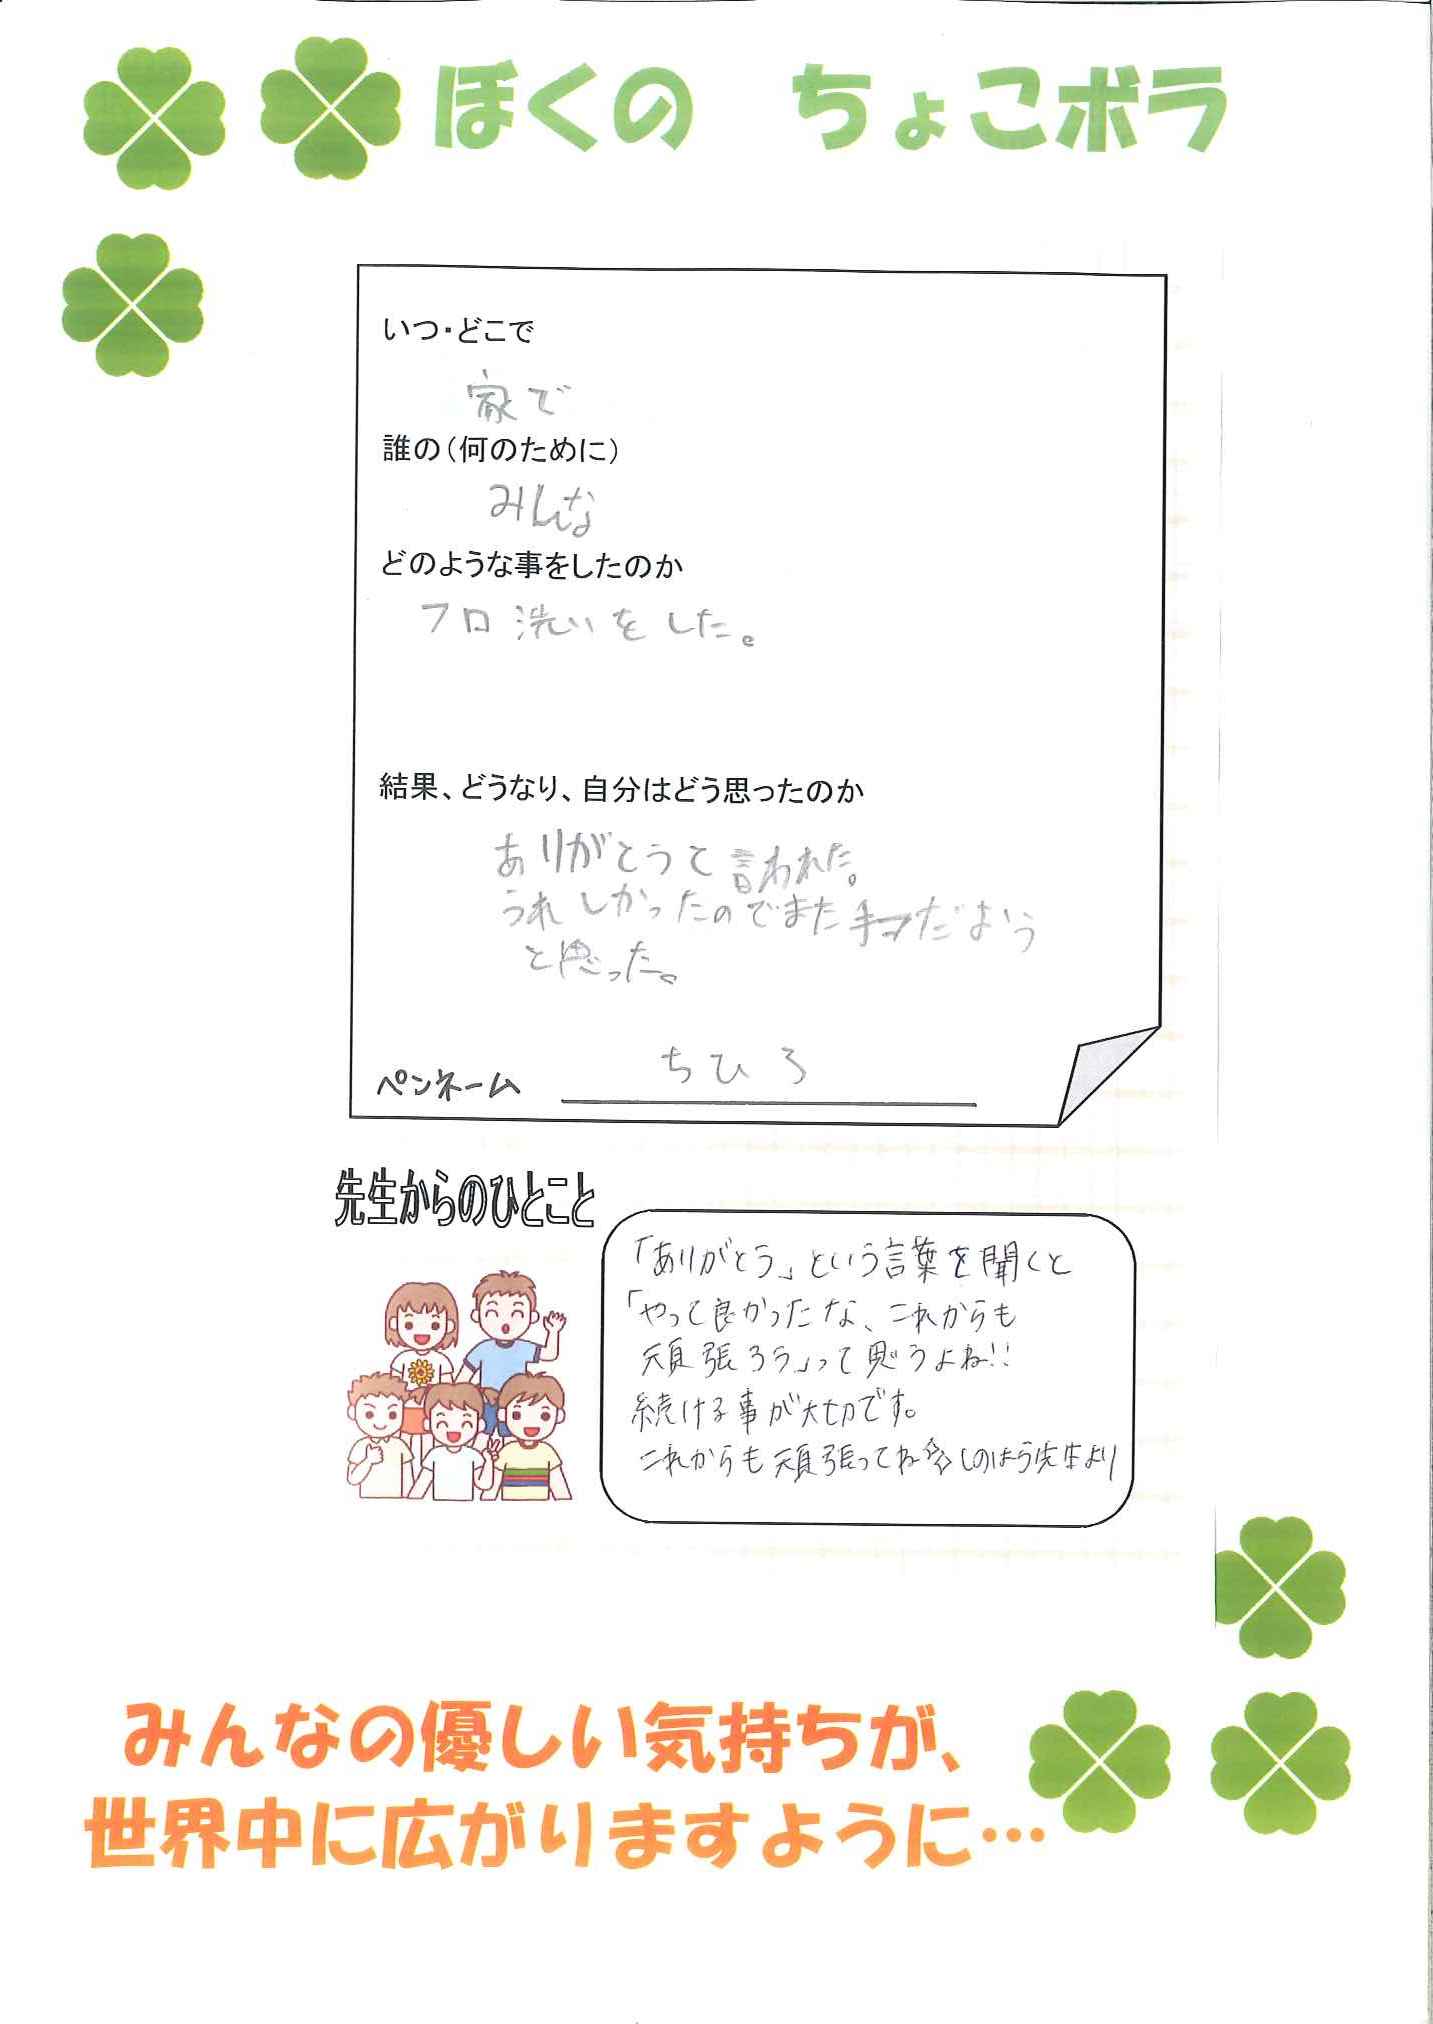 ぼくの ちょこボラ
いつ・どこで
家で
誰の(何のために)
みんな
どのような事をしたのか
フロ洗いをした。
結果、どうなり、自分はどう思ったのか
ありがとうと言われた。
うれしかったのでまた手つだおう
と思った。
ペンネーム ちひろ
先生からのひとこと
「ありがとう」という言葉を聞くと
「やって良かったな、これからも
頑張ろう」って思うよね!!
続ける事が大切です。
これからも頑張ってね☆しのはら先生より
みんなの優しい気持ちが、
世界中に広がりますように…